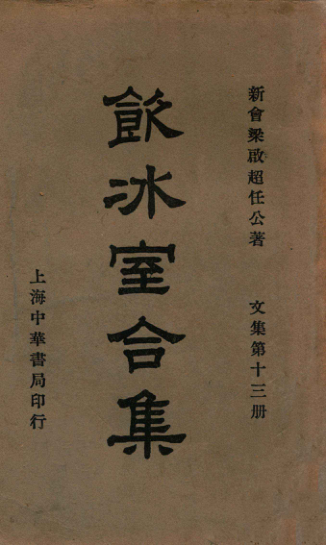 新會梁啟超任公著 文集第十三册
飲冰室合集
上海中華書局印行